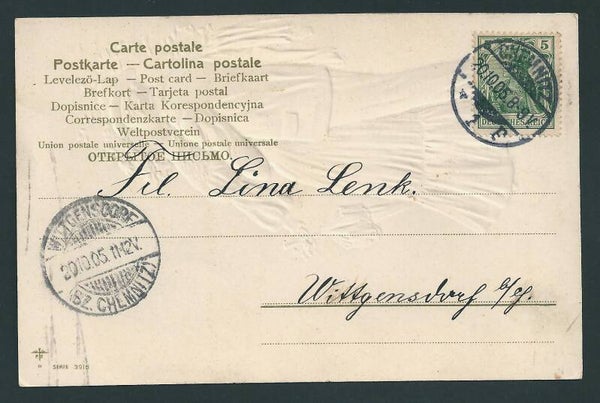 Carte postale
Postkarte — Cartolina postale
Levelező-Lap — Post card — Briefkaart
Brefkort — Tarjeta postal
Dopisnice — Karta Korespondencyjna
Correspondenzkarte — Dopisnica
Weltpostverein
Union postale universelle — Unione postale universale
ОТКРЫТОЕ ПИСЬМО.
5
DEUTSCHES REICH
CHEMNITZ
20.10.05. 8-9V.
1
Frl. Lina Lenk.
WITTGENSDORF
20.10.05. 11-12V.
(BZ. CHEMNITZ)
Wittgensdorf b/Ch.
SERIE